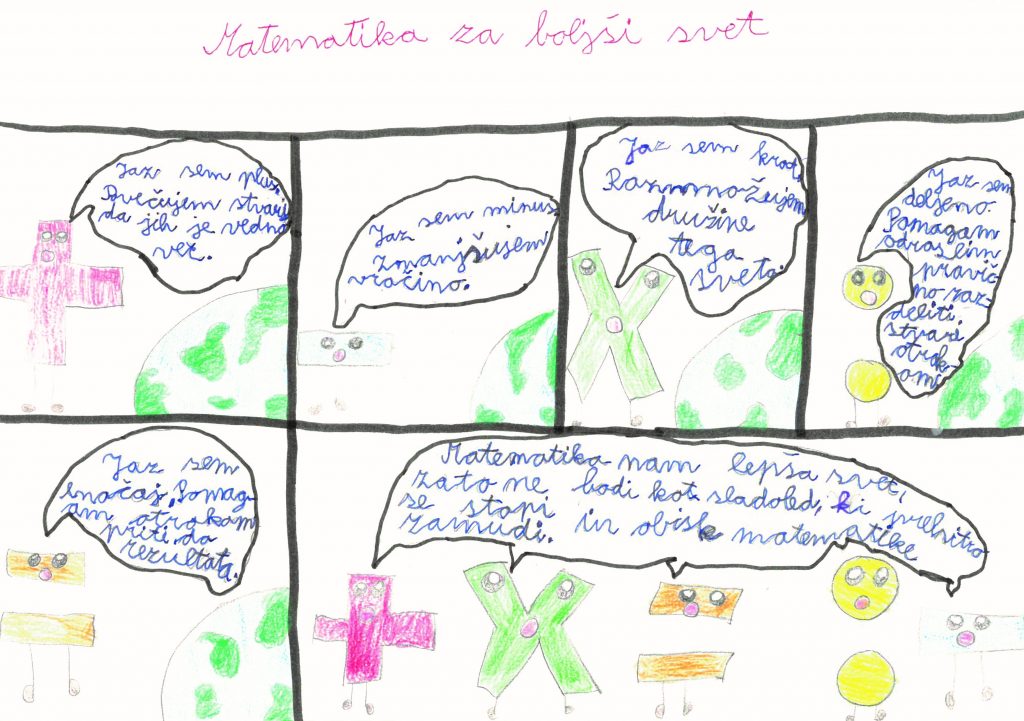 Matematika za boljši svet
Jaz sem plus
Povečujem stvari
da jih je vedno
več.
Jaz sem minus
zmanjšujem
vročino.
Jaz sem krat.
Razmnožujem
družine
tega
sveta.
Jaz sem
deljeno.
Pomagam
odraslim
pravič
no raz-
deliti
stvari
otrok
om.
Jaz sem
enačaj. Pomag-
am otrokom
priti do
rezultata.
Matematika nam lepša svet,
zato ne bodi kot sladoled, ki prehitro
se stopi in obisk matematike
zamudi.